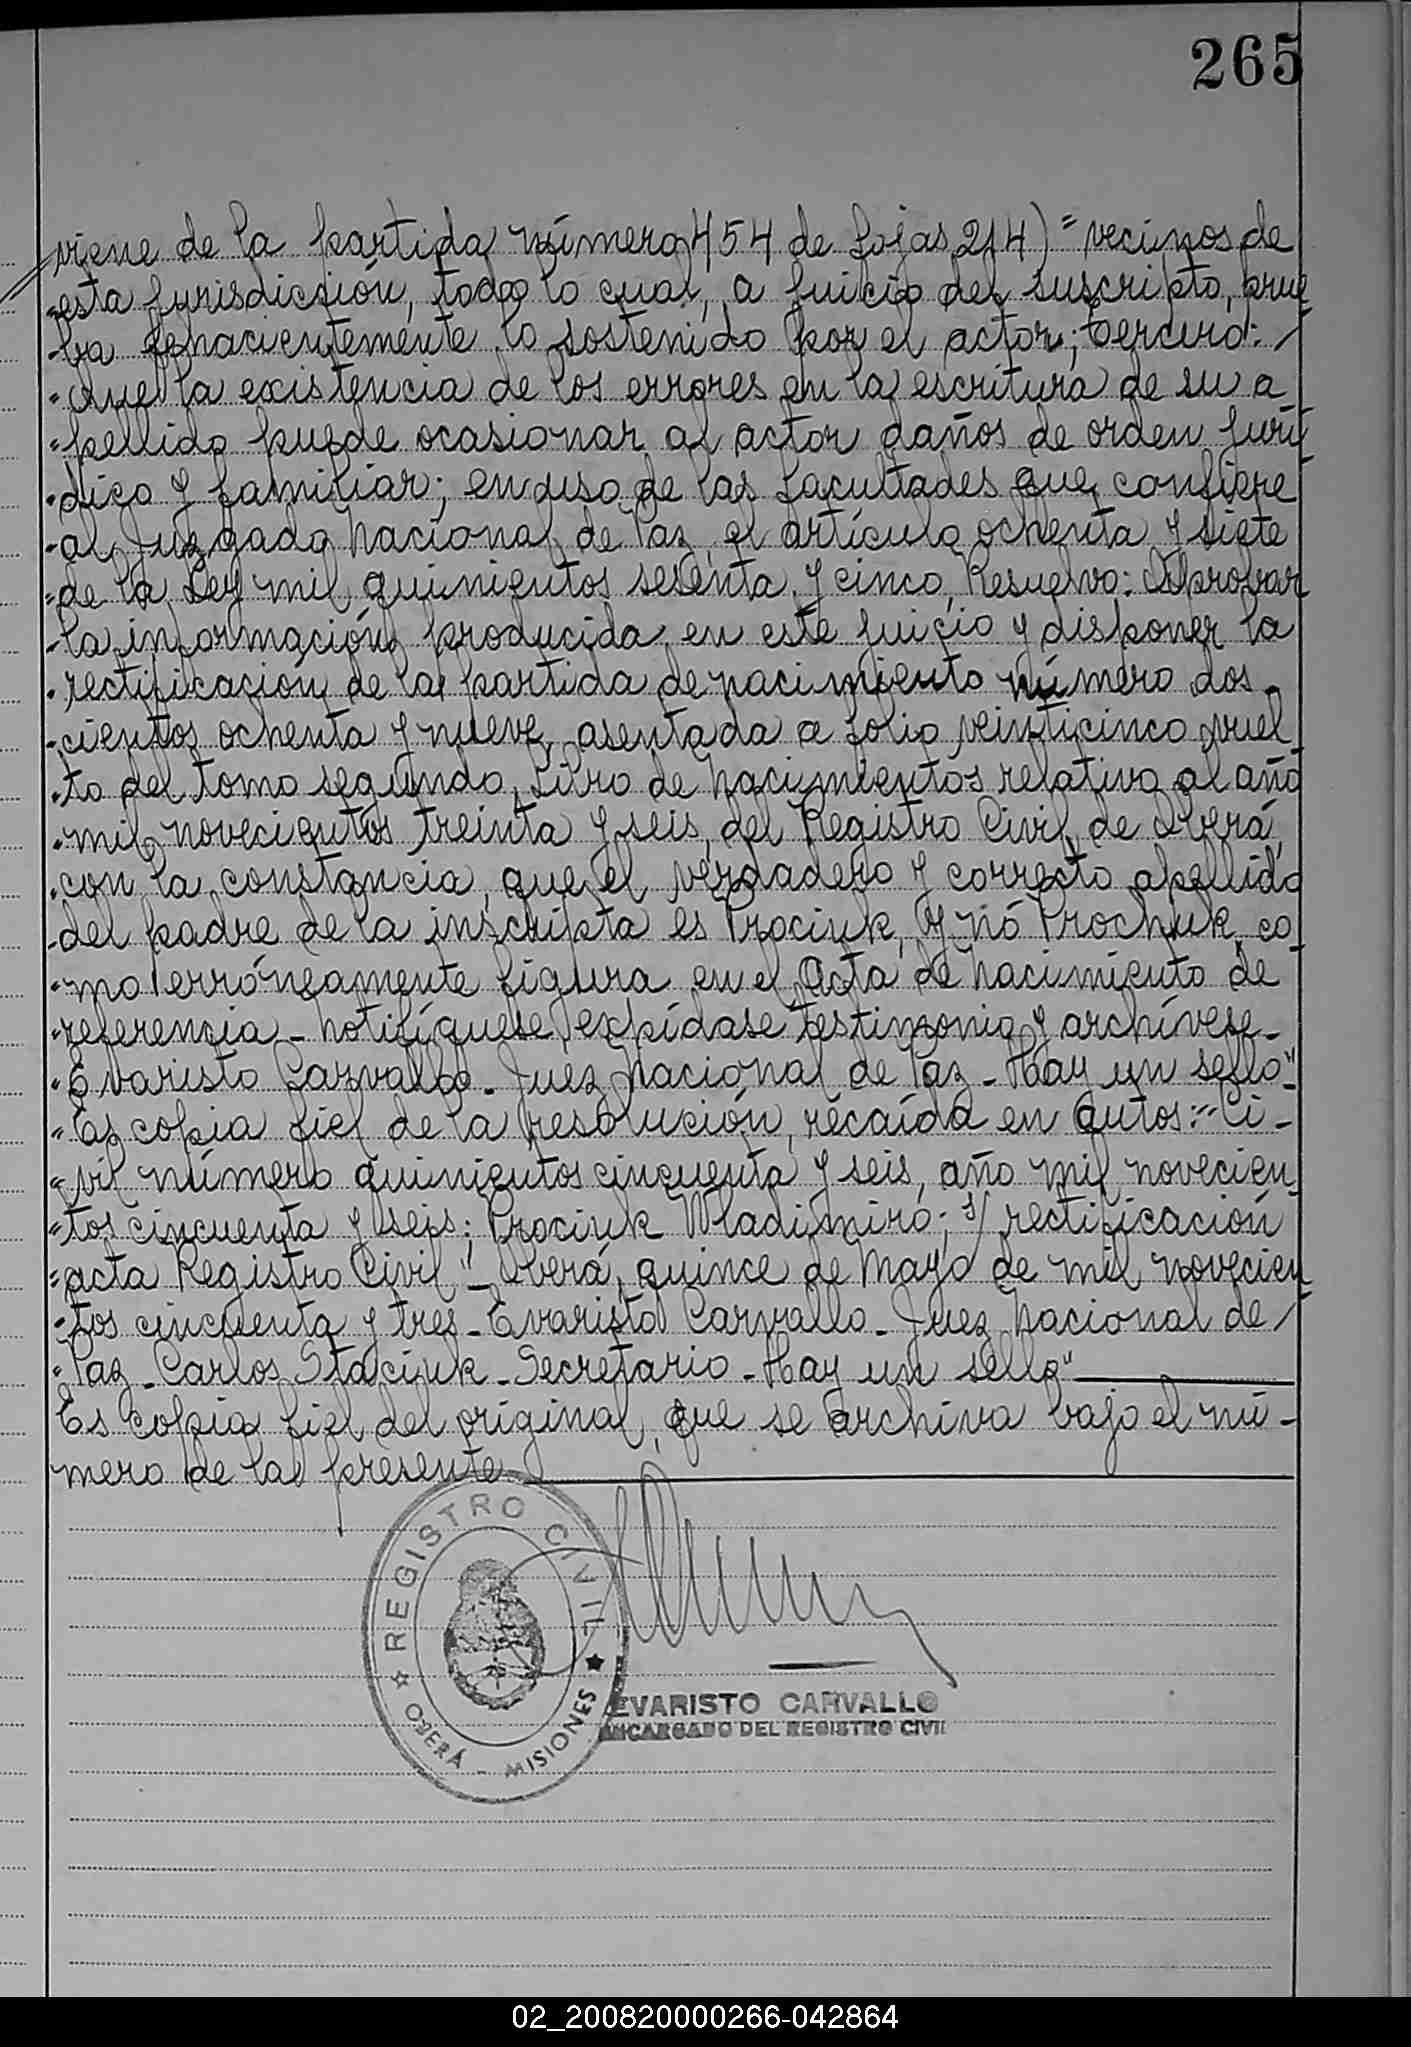 265
viene de la partida número 454 de fojas 214) " vecinos de
"esta jurisdicción, todo lo cual, a juicio del suscripto, prue
"ba fehacientemente lo sostenido por el actor; tercero:
"Que la existencia de los errores en la escritura de su a
"pellido puede ocasionar al actor daños de orden jurí
"dico y familiar; en uso de las facultades que confiere
"al Juzgado Nacional de Paz, el artículo ochenta y siete
"de la Ley mil quinientos sesenta y cinco, Resuelvo: Aprobar
"la información producida en este juicio y disponer la
"rectificación de la partida de nacimiento número dos
"cientos ochenta y nueve, asentada a folio veinticinco vuel
"to del tomo segundo, Libro de Nacimientos relativo al año
"mil novecientos treinta y seis, del Registro Civil de Oberá,
"con la constancia, que el verdadero y correcto apellido
"del padre de la inscripta es Prociuk, y nó Prochuk, co
"mo erróneamente figura en el Acta de Nacimiento de
"referencia - Notifíquese, expídase testimonio y archívese -
"Evaristo Carvallo - Juez Nacional de Paz - Hay un sello"-
"Es copia fiel de la resolución, recaída en autos: "Ci-
"vil número quinientos cincuenta y seis, año mil novecien
"tos cincuenta y seis; Prociuk Wladimiro; s/ rectificación
"acta Registro Civil" - Oberá, quince de Mayo de mil novecien
"tos cincuenta y tres - Evaristo Carvallo - Juez Nacional de
"Paz - Carlos Staciuk - Secretario - Hay un sello"
Es copia fiel del original, que se archiva bajo el nú-
mero de la presente
REGISTRO CIVIL
OBERÁ - MISIONES
EVARISTO CARVALLO
ENCARGADO DEL REGISTRO CIVIL
02_200820000266-042864